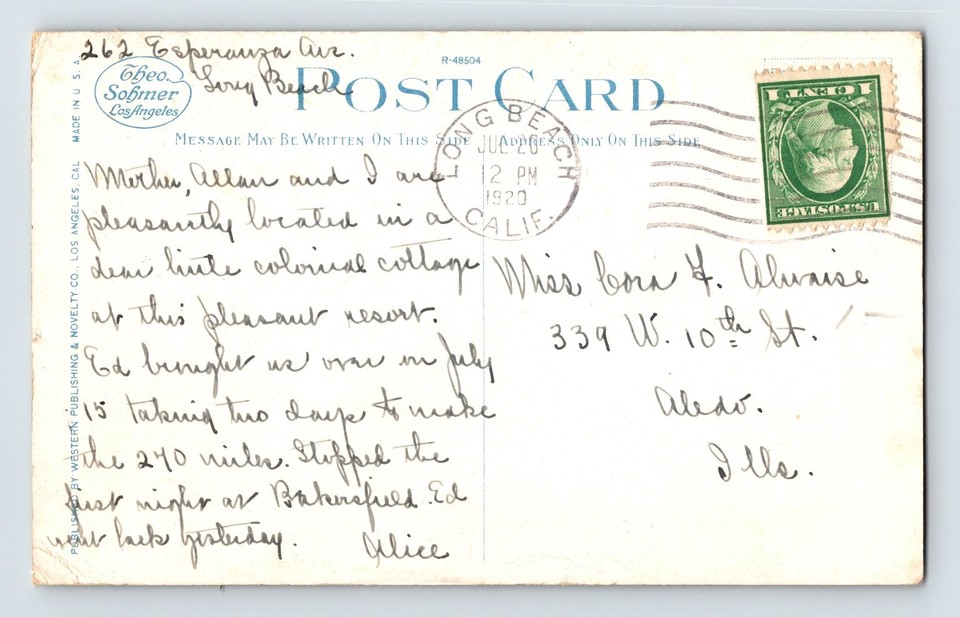 262 Esperanza Ave.
Long Beach
R-48504
POST CARD
Theo.
Sohmer
Los Angeles
MADE IN U. S. A.
MESSAGE MAY BE WRITTEN ON THIS SIDE
ADDRESS ONLY ON THIS SIDE
LONG BEACH
JUL 20
12 PM
1920
CALIF.
1 CENT 1
U.S. POSTAGE
Mother, Allan and I are
pleasantly located in a
dear little colonial cottage
at this pleasant resort.
Ed brought us over in July
15 taking two days to make
the 270 miles. Stopped the
first night at Bakersfield. Ed
went back yesterday.
Alice
Miss Cora F. Alwaise
339 W. 10th St.
Aledo.
Ills.
PUBLISHED BY WESTERN PUBLISHING & NOVELTY CO., LOS ANGELES, CAL.